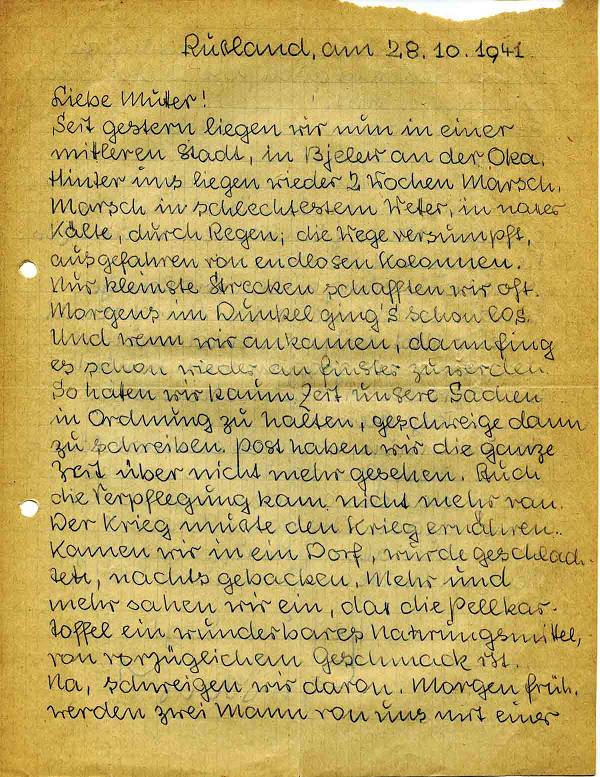 Rußland, am 28.10.1941
Liebe Mutter!
Seit gestern liegen wir nun in einer
mitleren Stadt, in Bjelew an der Oka.
Hinter uns liegen wieder 2 Wochen Marsch.
Marsch in schlechtestem Weter, in naßer
Kälte, durch Regen; die Wege versumpft,
ausgefahren von endlosen Kolonnen.
Nur kleinste Strecken schafften wir oft.
Morgens im Dunkel ging's schon los.
Und wenn wir ankamen, dann fing
es schon wieder an finster zu werden.
So haten wir kaum Zeit unsere Sachen
in Ordnung zu halten, geschweige dann
zu schreiben. Post haben wir die ganze
Zeit über nicht mehr gesehen. Auch
die Verpflegung kam nicht mehr ran.
Der Krieg mußte den Krieg ernähren.
Kamen wir in ein Dorf, wurde geschlach-
tet, nachts gebacken. Mehr und
mehr sahen wir ein, daß die Pellkar-
toffel ein wunderbares Nahrungsmittel,
von vorzüglichem Geschmack ist.
Na, schweigen wir davon. Morgen früh
werden zwei Mann von uns mit einer